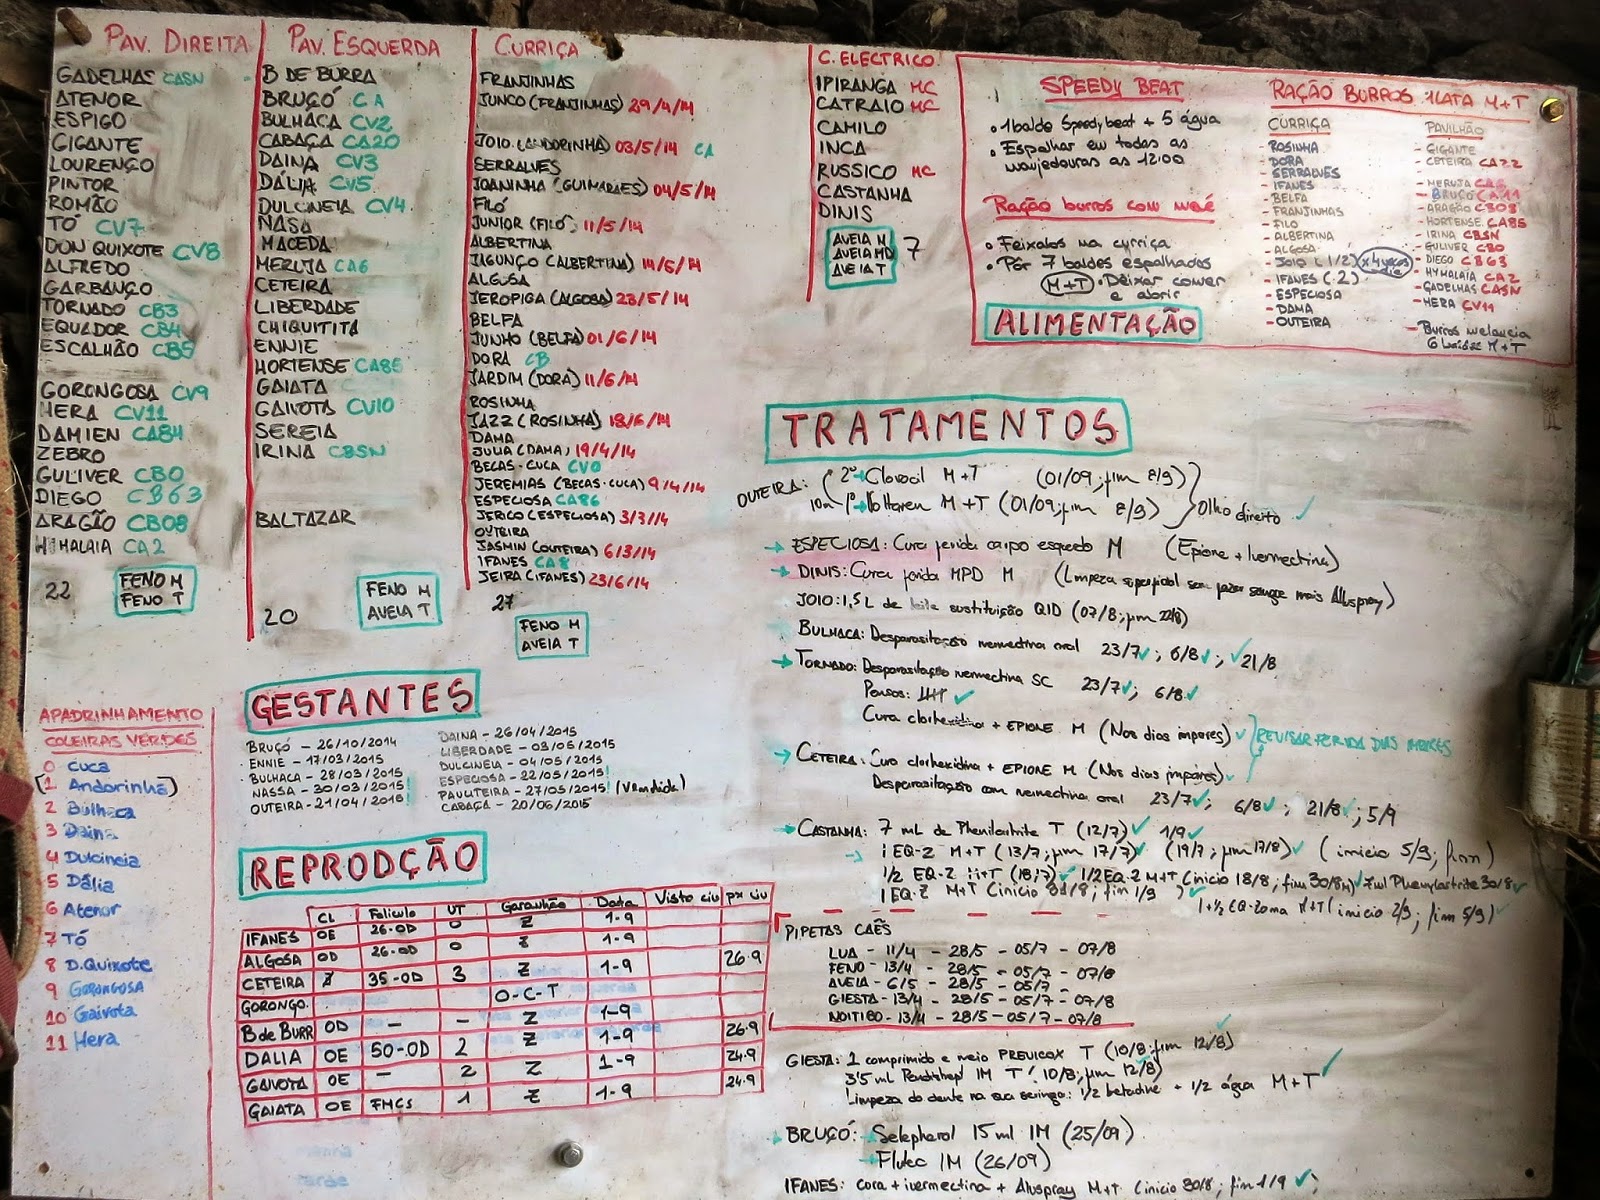 PAV. DIREITA
GADELHAS CASN
ATENOR
ESPIGO
GIGANTE
LOURENÇO
PINTOR
ROMÃO
TÓ CV7
DON QUIXOTE CV8
ALFREDO
GARBANÇO
TORNADO CB3
EQUADOR CB4
ESCALHÃO CB5
GORONGOSA CV9
HERA CV11
DAMIEN CA84
ZEBRO
GULIVER CB0
DIEGO CB63
ARAGÃO CB08
HIMALAIA CA2
22
FENO M
FENO T
PAV. ESQUERDA
B DE BURRA
BRUÇÓ CA
BULHACA CV2
CABAÇA CA20
DAINA CV3
DÁLIA CV5
DULCINEIA CV4
NASA
MACEDA
MERUJA CA6
CETEIRA
LIBERDADE
CHIQUITITA
ENNIE
HORTENSE CA85
GAIATA
GAIVOTA CV10
SEREIA
IRINA CBSN
BALTAZAR
20
FENO M
AVEIA T
CURRIÇA
FRANJINHAS
JUNCO (FRANJINHAS) 29/4/14
JOIO (ANDORINHA) 03/5/14 CA
SERRALVES
JOANINHA (GUIMARÃES) 04/5/14
FILÓ
JUNIOR (FILÓ) 11/5/14
ALBERTINA
JAGUNÇO (ALBERTINA) 14/5/14
ALGOSA
JEROPIGA (ALGOSA) 23/5/14
BELFA
JUNHO (BELFA) 01/6/14
DORA CB
JARDIM (DORA) 11/6/14
ROSINHA
JAZZ (ROSINHA) 18/6/14
DAMA
JULIA (DAMA) 19/4/14
BECAS-CUCA CV0
JEREMIAS (BECAS-CUCA) 9/4/14
ESPECIOSA CA86
JERICO (ESPECIOSA) 3/3/14
OUTEIRA
JASMIN (OUTEIRA) 6/3/14
IFANES CA8
JEIRA (IFANES) 23/6/14
27
FENO M
AVEIA T
C. ELECTRICO
IPIRANGA MC
CATRAIO MC
CAMILO
INCA
RUSSICO MC
CASTANHA
DINIS
AVEIA M
AVEIA MD
AVEIA T
7
SPEEDY BEAT
• 1 balde Speedybeat + 5 água
• Espalhar em todas as
manjedouras as 12:00
Ração burros com
• Feixalos na curriça
• Pôr 7 baldes espalhados
M+T • Deixar comer
e abrir
ALIMENTAÇÃO
RAÇÃO BURROS 1 LATA M+T
CURRIÇA
- ROSINHA
- DORA
- SERRALVES
- IFANES
- BELFA
- FRANJINHAS
- FILO
- ALBERTINA
- ALGOSA
- JOIO (1/2) x4 vezes dia
- IFANES (.2)
- ESPECIOSA
- DAMA
- OUTEIRA
PAVILHÃO
- GIGANTE
- CETEIRA CA22
- MERUJA CA6
- BRUÇÓ CA11
- ARAGÃO CB08
- HORTENSE CA85
- IRINA CBSN
- GULIVER CB0
- DIEGO CB63
- HYMALAIA CA2
- GADELHAS CASN
- HERA CV11
- Burros melancia
6 M+T
TRATAMENTOS
OUTEIRA: 2º Clorocil M+T (01/09; fim 8/9)
10m 1º Voltaren M+T (01/09; fim 8/9) Olho direito ✓
→ ESPECIOSA: Cura ferida corpo esquedo M (Epione + Ivermectina)
→ DINIS: Cura ferida MPD M (Limpeza superficial sem fazer sangue mais Aluspray)
JOIO: 1,5 L de leite sustituição QID (07/8; fim 22/8)
→ BULHACA: Desparasitação ivermectina oral 23/7 ✓; 6/8 ✓; ✓ 21/8
→ TORNADO: Desparasitação ivermectina SC 23/7 ✓; 6/8 ✓
Pensos: ✓
Cura clorhexidina + EPIONE M (Nos dias impares) ✓ REVISAR FERIDA DIAS IMPARES
→ CETEIRA: Cura clorhexidina + EPIONE M (Nos dias impares) ✓
Desparasitação com ivermectina oral 23/7 ✓; 6/8 ✓; 21/8 ✓; 5/9
→ CASTANHA: 7 mL de Phenilartrite T (12/7) ✓ 1/9 ✓
1 EQ-Z M+T (13/7; fim 17/7) ✓ (19/7; fim 17/8) ✓ (inicio 5/9; fim )
1/2 EQ-Z M+T (18/7) ✓ 1/2 EQ-Z M+T (inicio 18/8; fim 30/8 M) ✓ 7 ml Phenylartrite 30/8 ✓
1 EQ-Z M+T (inicio 31/8; fim 1/9) ✓ 1+1/2 EQ-Zoma M+T (inicio 2/9; fim 5/9) ✓
PIPETAS CAES
LUA - 11/4 - 28/5 - 05/7 - 07/8
FENO - 13/4 - 28/5 - 05/7 - 07/8
AVEIA - 6/5 - 28/5 - 05/7 -
GIESTA - 13/4 - 28/5 - 05/7 - 07/8
NOITIBO - 13/4 - 28/5 - 05/7 - 07/8
GIESTA: 1 comprimido e meio PREVICOX T (10/8; fim 12/8) ✓
3'5 ml IM T (10/8; fim 12/8)
Limpeza do dente na sua seringa: 1/2 betadine + 1/2 água M+T ✓
→ BRUÇÓ: → Selepherol 15 ml IM (25/09)
→ Flutec IM (26/09)
IFANES: cora + ivermectina + Aluspray M+T (inicio 30/8; fim 1/9 ✓;
GESTANTES
BRUÇÓ - 26/10/2014
ENNIE - 17/03/2015
BULHACA - 28/03/2015
NASSA - 30/03/2015!
OUTEIRA - 21/04/2015!
DAINA - 26/04/2015
LIBERDADE - 03/05/2015
DULCINEIA - 04/05/2015
ESPECIOSA - 22/05/2015!
PAULITEIRA - 27/05/2015! (Vendida)
CABAÇA - 20/06/2015
APADRINHAMENTO
COLEIRAS VERDES
0 Cuca
(1 Andorinha)
2 Bulhaca
3 Daina
4 Dulcineia
5 Dália
6 Atenor
7 Tó
8 D. Quixote
9 Gorongosa
10 Gaivota
11 Hera
REPRODÇÃO
CL Foliculo UT Garanhão Data Visto ciu px ciu
IFANES OE 26-OD 0 Z 1-9
ALGOSA OD 26-OD 0 Z 1-9 26.9
CETEIRA Z 35-OD 3 Z 1-9
GORONGO. O-C-T
B de BURR OD — — Z 1-9 26.9
DALIA OE 50-OD 2 Z 1-9 24.9
GAIVOTA OE — 2 Z 1-9 24.9
GAIATA OE FMCS 1 Z 1-9